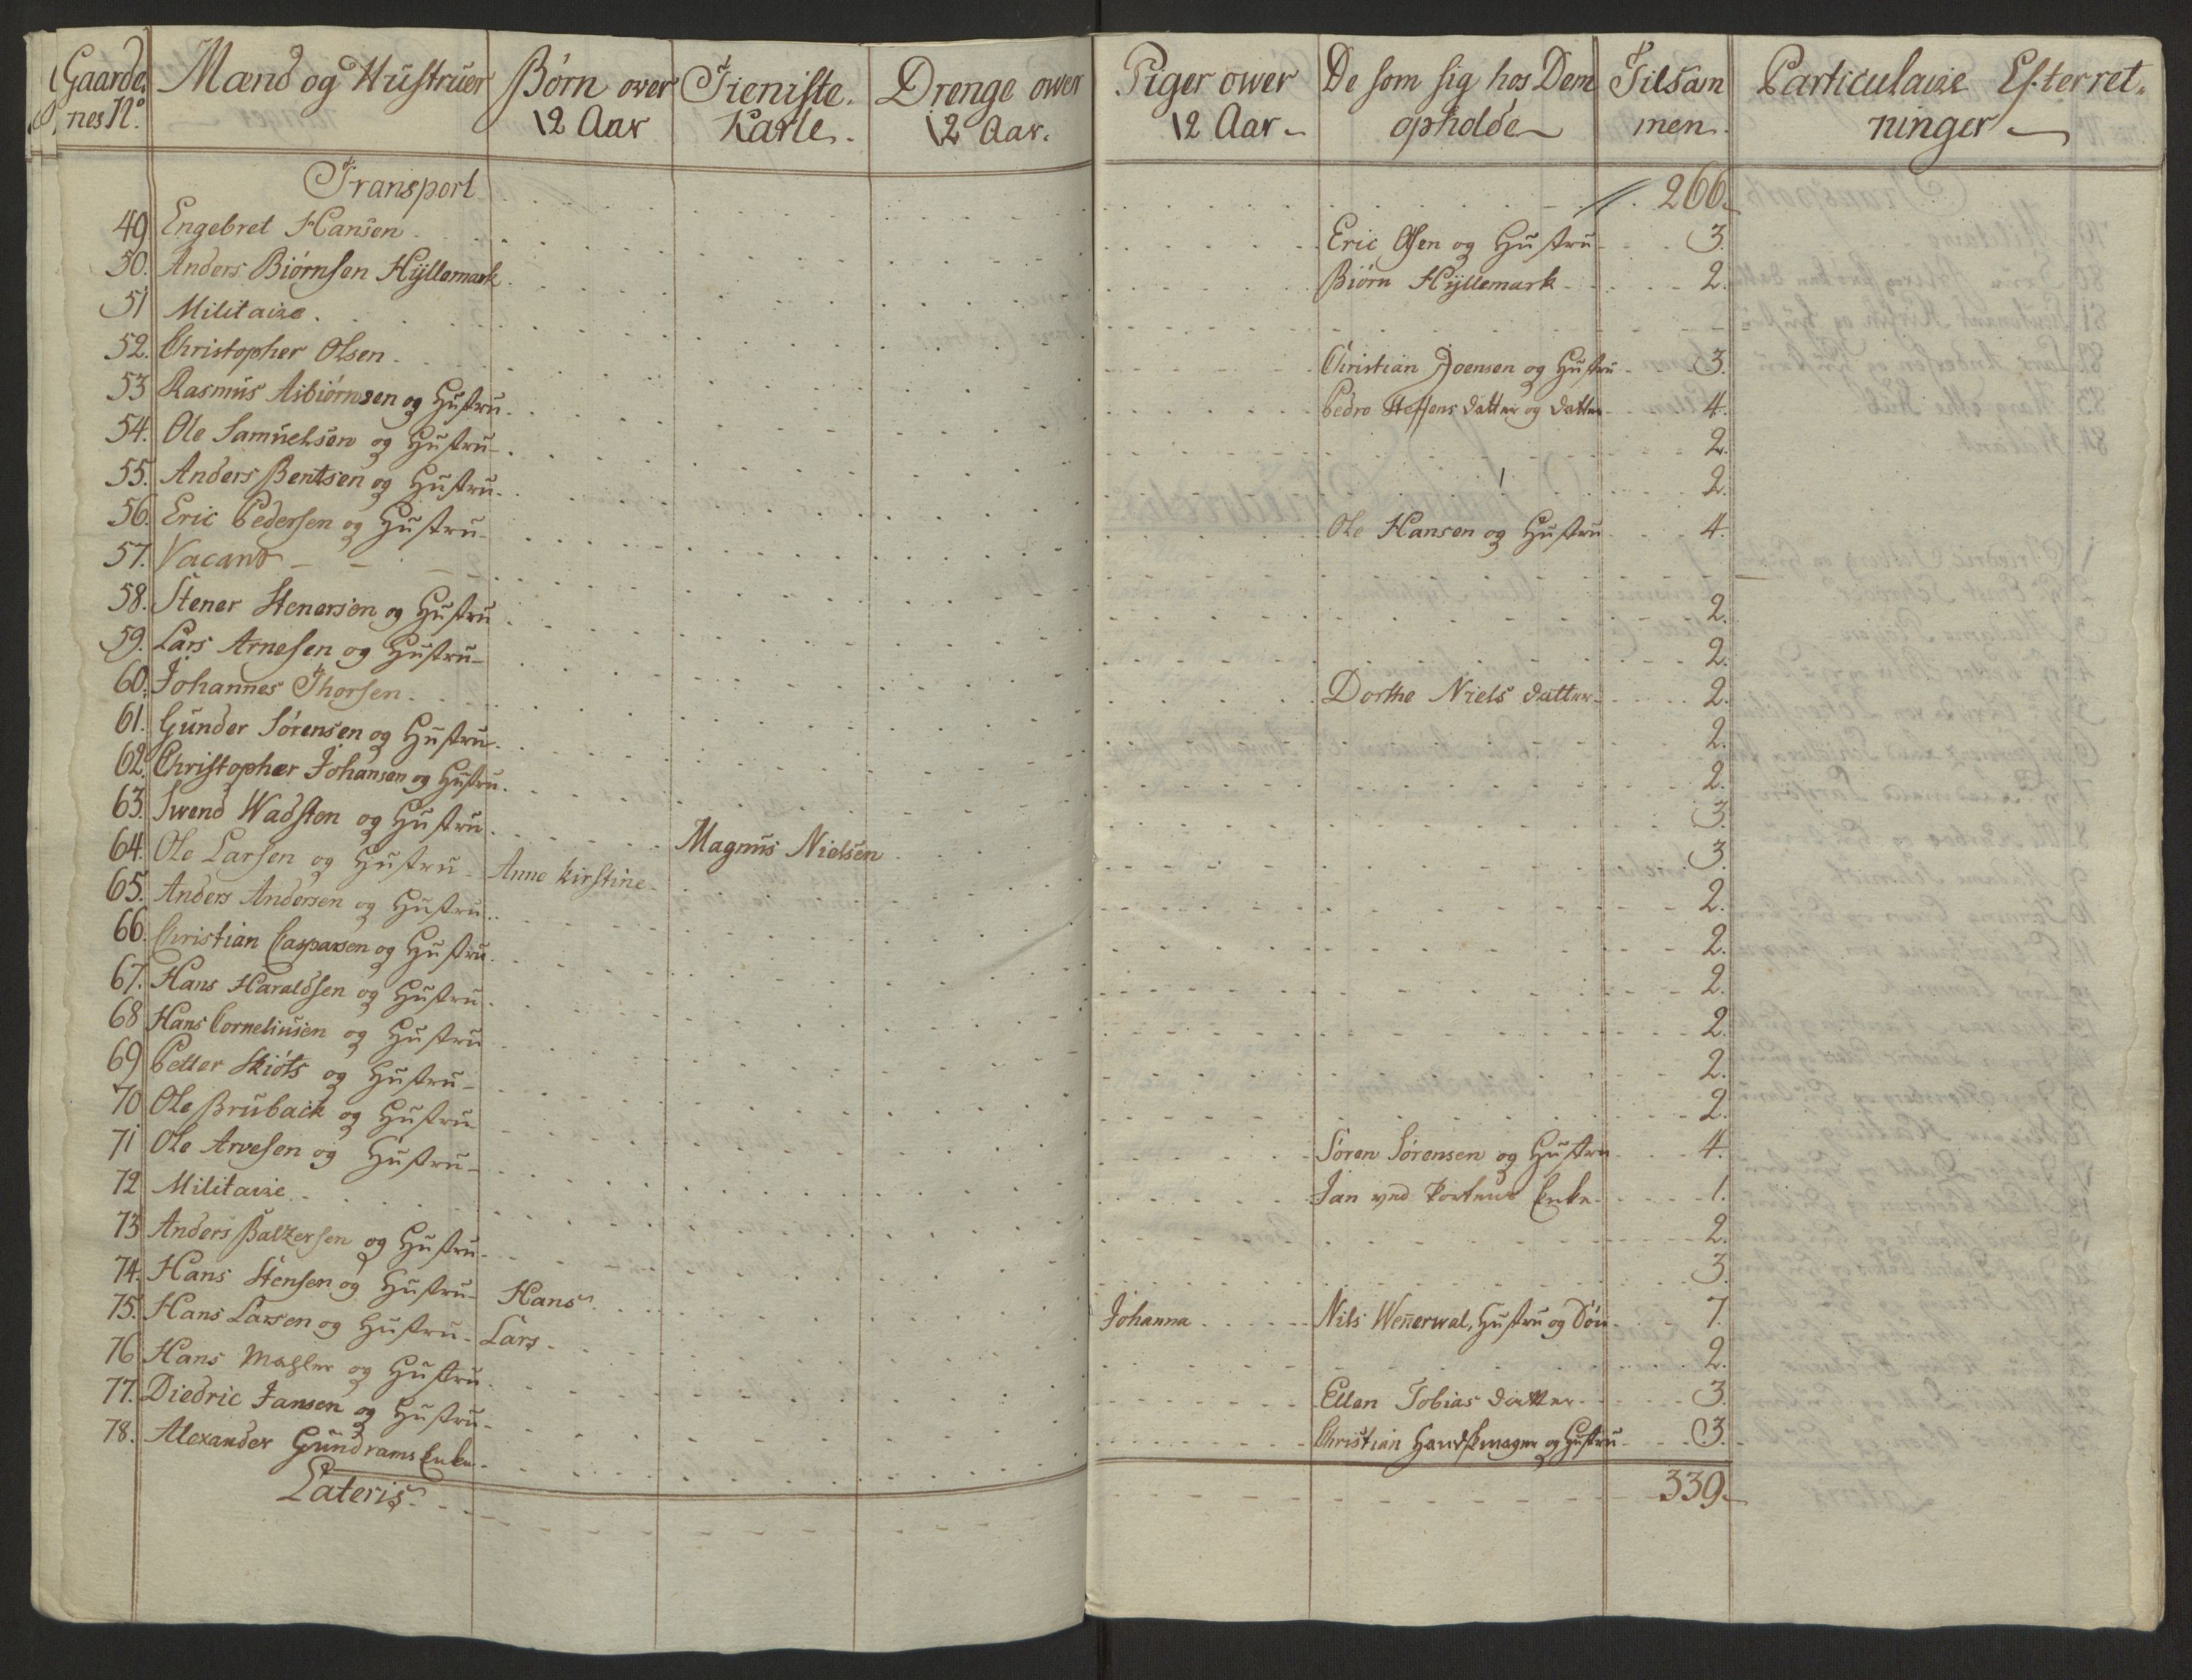 Gaarde, nes No. | Mænd og Hustruer | Børn over 12 Aar | Tieniste, Karle. | Drenge over 12 Aar. | Piger over 12 Aar | De som sig hos Dem opholde | Tilsammen. | Particulaire Efterretninger
Transport 266.
49 Engebret Hansen. Eric Olsen og Hustru 3.
50. Anders Biørnsen Hÿllemark. Biørn Hÿllemark 2.
51 Militaire.
52. Christopher Olsen. Christian Joensen og Hustru 3.
53 Rasmus Asbiørnsen og Hustru. Pedro Steffens datter og datter 4.
54. Ole Samuelsen og Hustru 2.
55. Anders Bentsen og Hustru. 2.
56. Eric Pedersen og Hustru Ole Hansen og Hustru 4.
57. Vacant
58. Stener Stenersen og Hustru 2.
59. Lars Arnesen og Hustru 2.
60. Johannes Thorsen. Dorthe Niels datter. 2.
61. Gunder Sørensen og Hustru. 2.
62. Christopher Johansen og Hustru. 2.
63. Swend Wadsten og Hustru. Magnus Nielsen 3.
64. Ole Larsen og Hustru Anne Kirstine 3.
65. Anders Andersen og Hustru. 2.
66. Christian Caspersen og Hustru. 2.
67. Hans Haraldsen og Hustru. 2.
68 Hans Corneliusen og Hustru 2.
69 Petter Skiøts og Hustru 2.
70 Ole Bruback og Hustru 2.
71 Ole Arvesen og Hustru Søren Sørensen og Hustru 4.
72 Militaire. Jan ved Porten Enke 1.
73 Anders Balzersen og Hustru. 2.
74. Hans Stensen og Hustru Hans 3.
75. Hans Larsen og Hustru. Lars. Johanna Nils Wen̄erwal, Hustru og Søn 7.
76 Hans Mahler og Hustru. 2.
77. Diedric Jansen og Hustru Ellen Tobias datter 3.
78. Alexander Gundrams Enke. Christian Handskemager og Hustru 3.
Lateris 339.